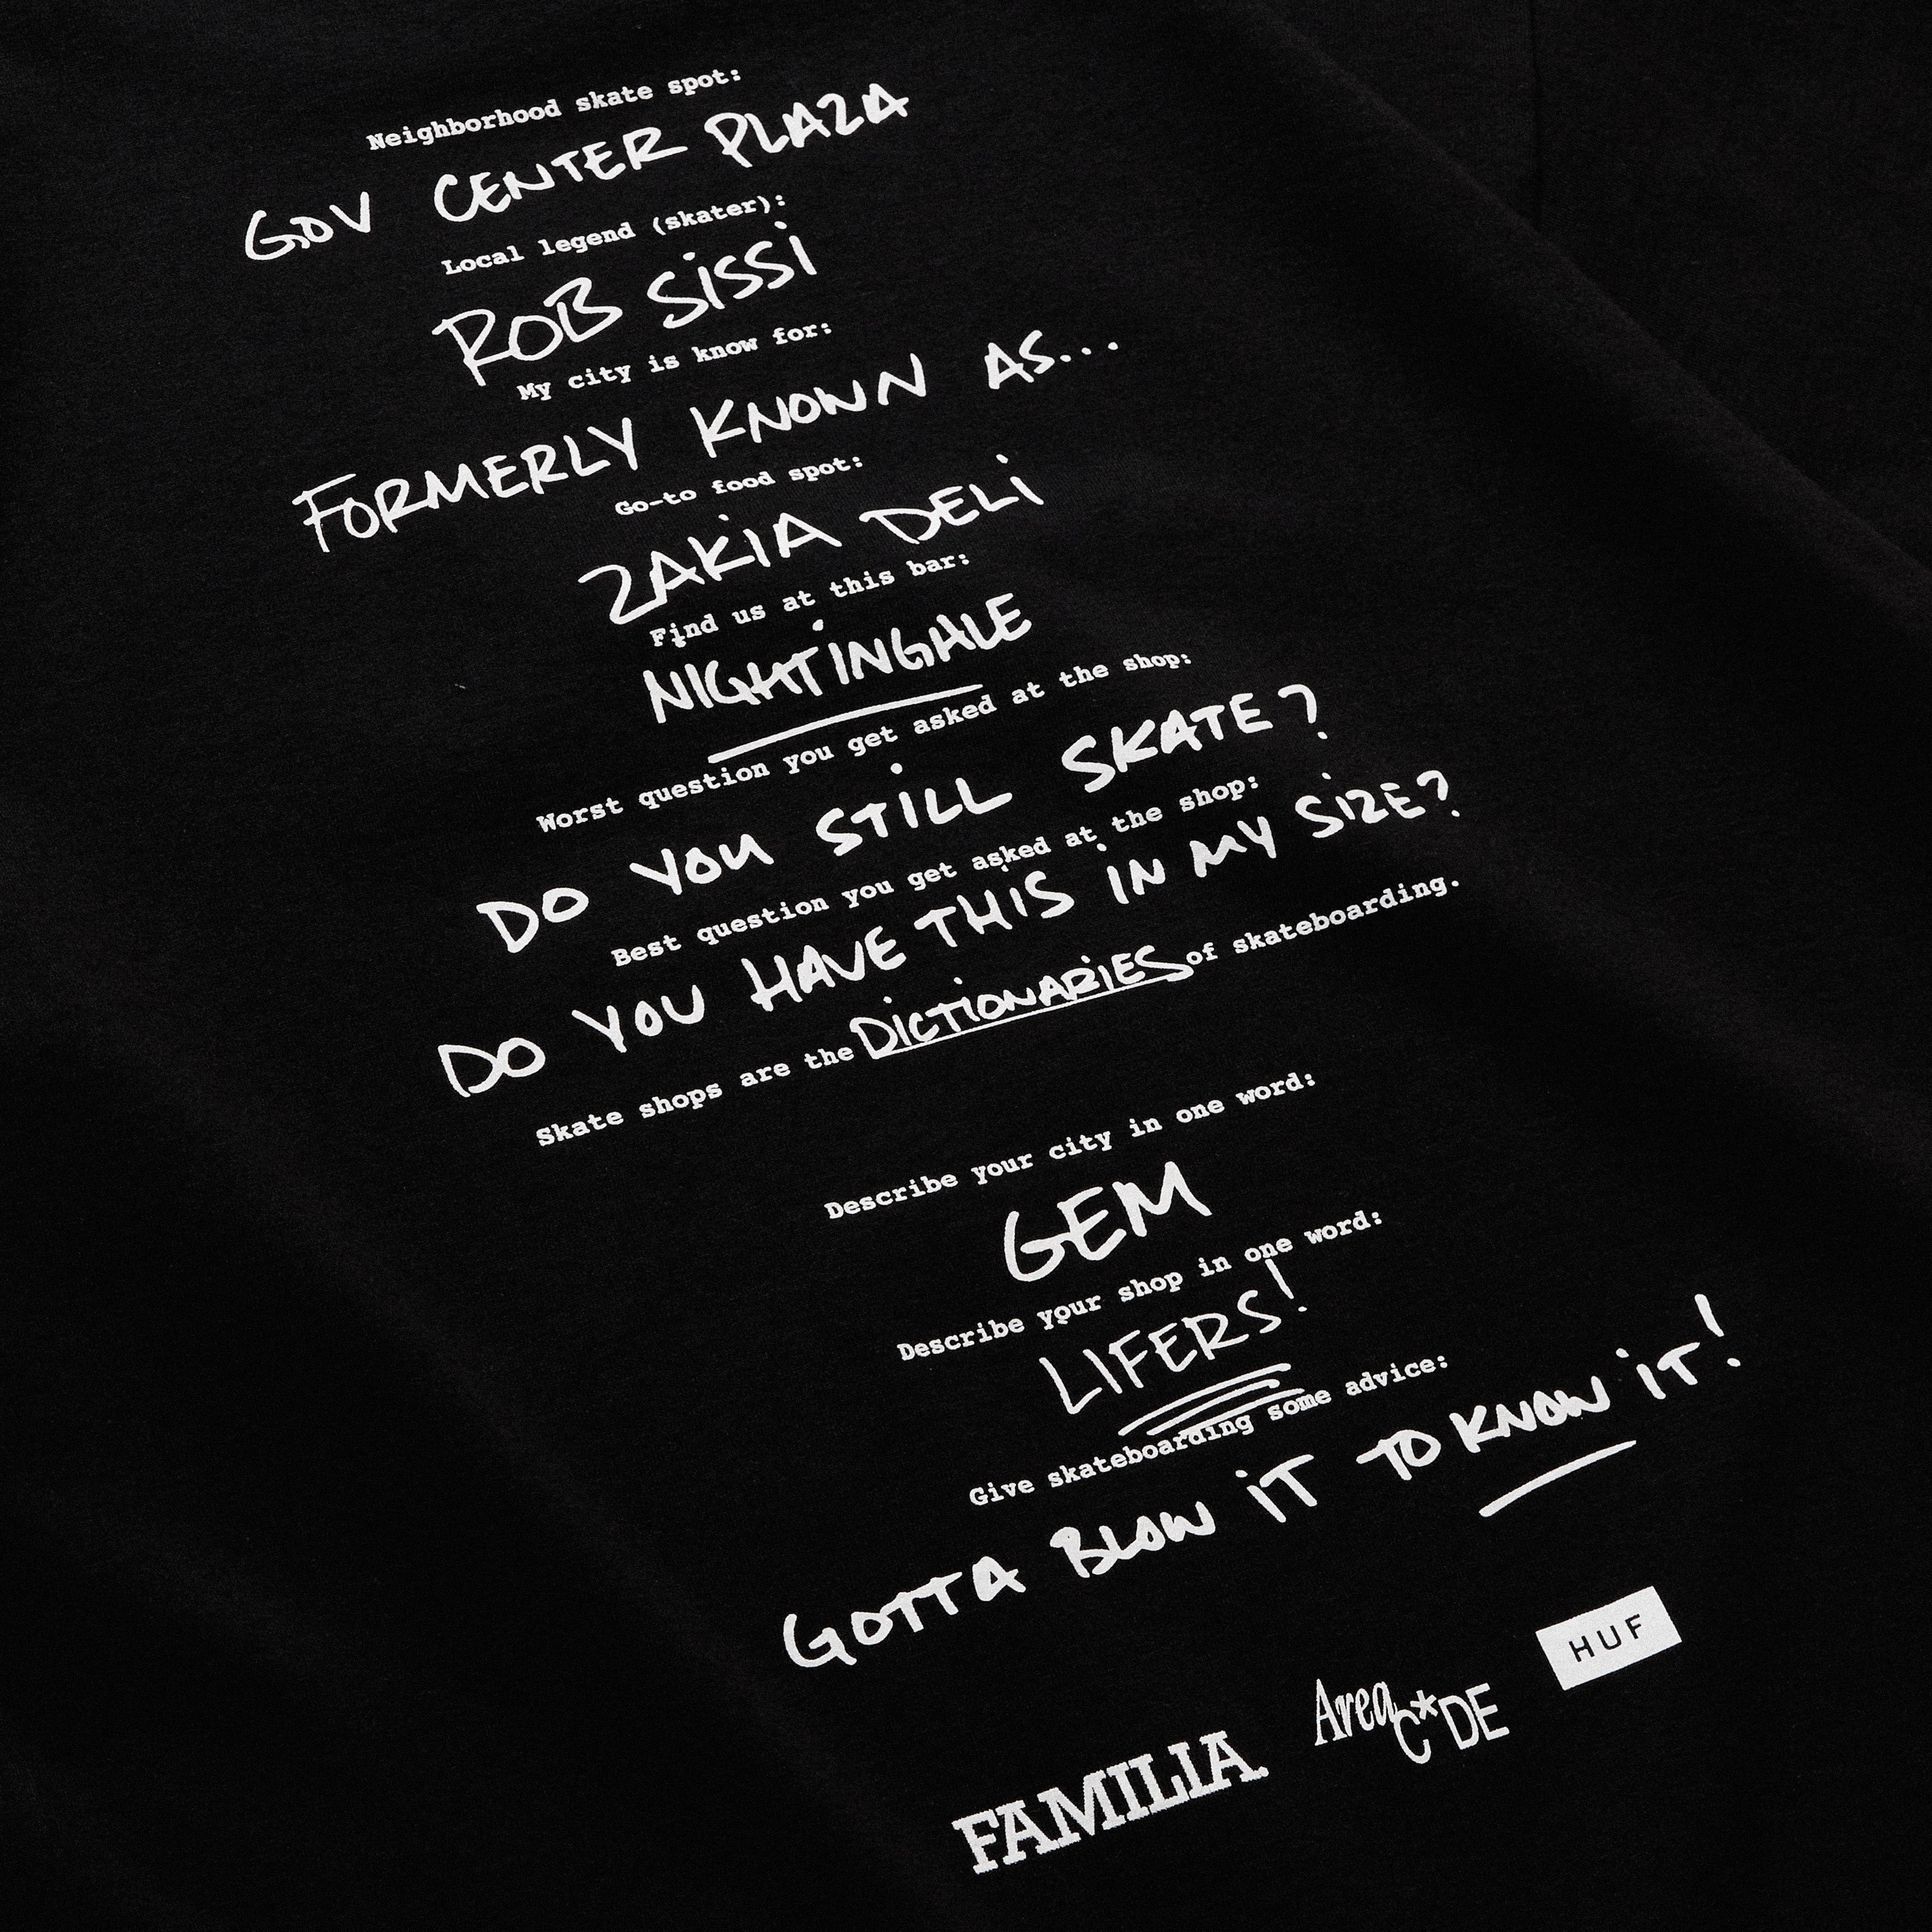 Neighborhood skate spot:
GOV CENTER PLAZA
Local legend (skater):
ROB SiSSi
My city is know for:
FORMERLY KNOWN AS...
Go-to food spot:
ZAKiA DELi
Find us at this bar:
NIGHTiNGALE
Worst question you get asked at the shop:
DO YOU STiLL SKATE?
Best question you get asked at the shop:
DO YOU HAVE THiS IN MY SiZE?
Skate shops are the DICTiONARiES of skateboarding.
Describe your city in one word:
GEM
Describe your shop in one word:
LIFERS!
Give skateboarding some advice:
GOTTA BLOW iT TO KNOW iT!
FAMILIA.
Area C*DE
HUF